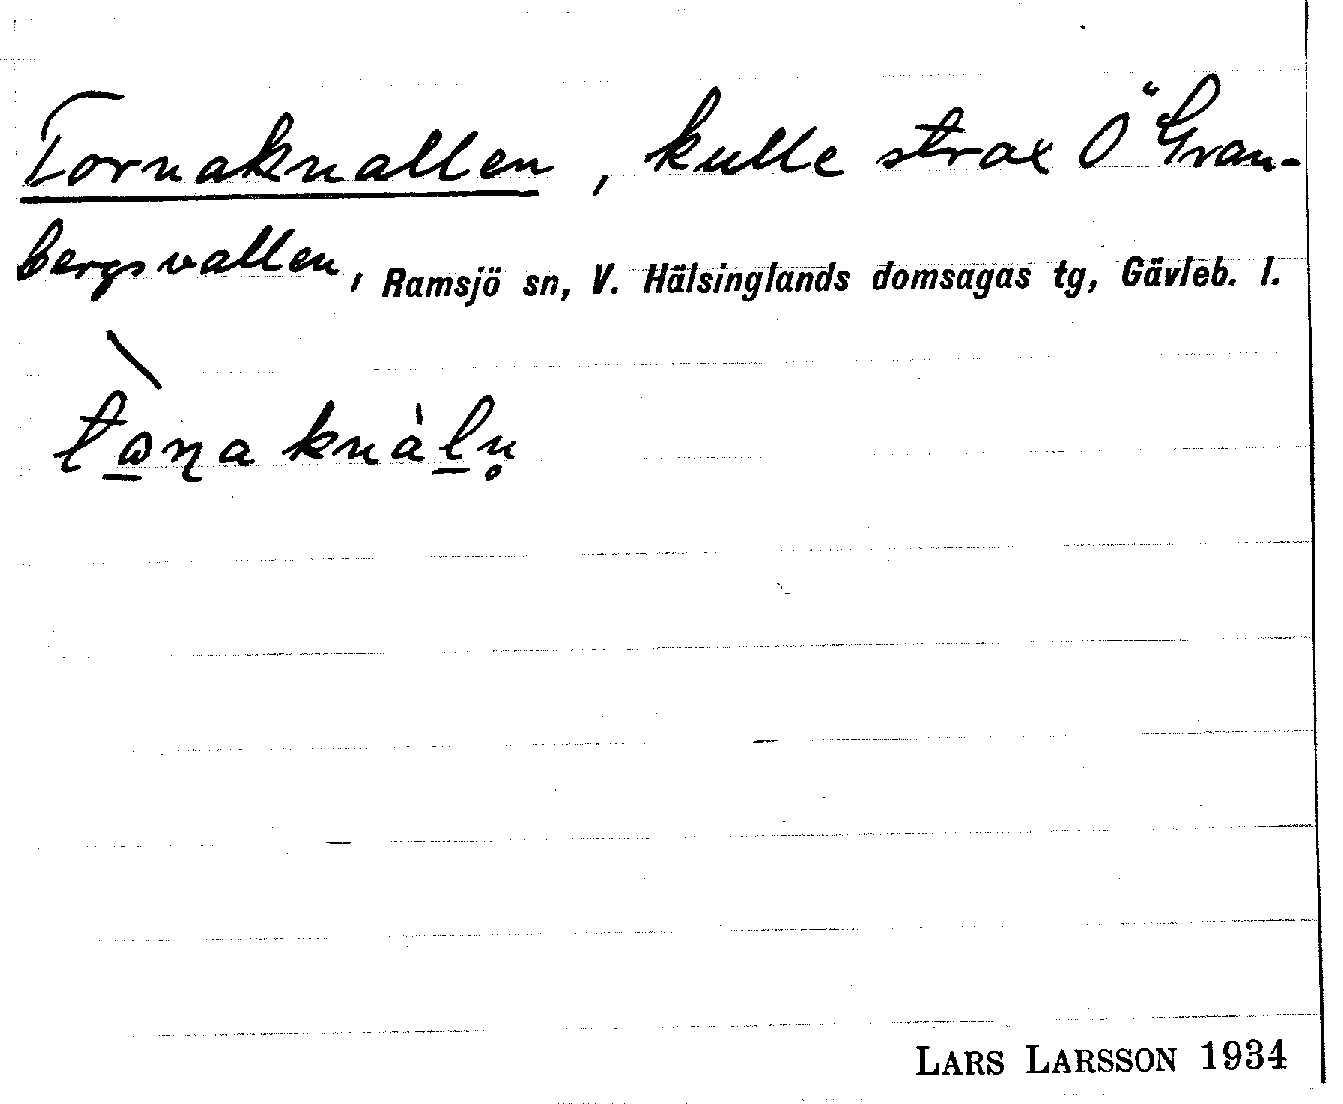 Tornaknallen, kulle strax Ö Gran-
bergsvallen, Ramsjö sn, V. Hälsinglands domsagas tg, Gävleb. l.
LARS LARSSON 1934